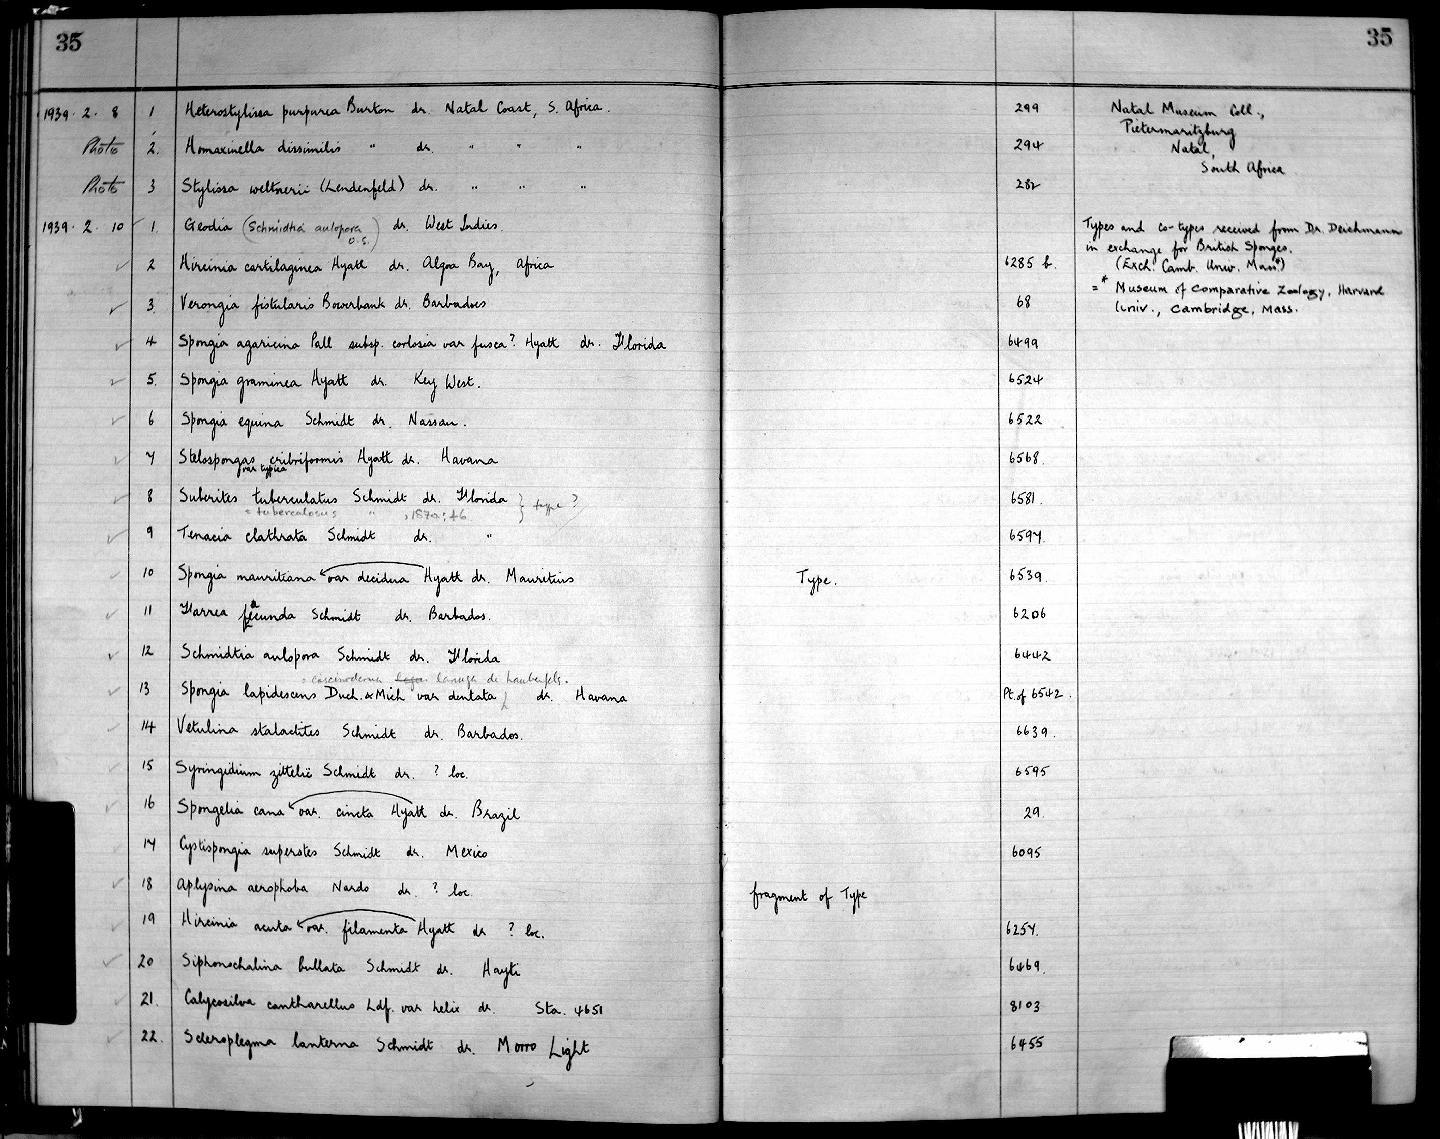 35
35
1939. 2. 8 1 Heterostylissa purpurea Burton dr. Natal Coast, S. Africa. 299 Natal Museum Coll.,
Pietermaritzburg
Photo 2. Homaxinella dissimilis " dr. " " " 294 Natal,
South Africa
Photo 3 Stylissa weltnerii (Lendenfeld) dr. " " " 282
1939. 2. 10 1. Geodia (Schmidtia aulopora dr. West Indies Types and co-types received from Dr. Deichmann
O.S.)
in exchange for British Sponges.
2 Hircinia cartilaginea Hyatt dr. Algoa Bay, Africa 6285 b. (Exch. Camb. Univ. Mass*)
= * Museum of Comparative Zoology, Harvard
3. Verongia fistularis Bowerbank dr. Barbadoes 68 Univ., Cambridge, Mass.
4 Spongia agaricina Pall subsp. corlosia var fusca? Hyatt dr. Florida 6499
5. Spongia graminea Hyatt dr. Key West. 6524
6 Spongia equina Schmidt dr. Nassau. 6522
7 Stelospongos cribriformis Hyatt dr. Havana 6568.
var typica
8 Suberites tuberculatus Schmidt dr. Florida } type? 6581.
= tuberculosus " , 1870: 46
9 Tenacia clathrata Schmidt dr. " 6597.
10 Spongia mauritiana var decidera Hyatt dr. Mauritius Type. 6539.
11 Farrea fæcunda Schmidt dr. Barbados. 6206
12 Schmidtia aulopora Schmidt dr. Florida 6442
= coscinoderma lanuga de Laubenfels.
13 Spongia lapidescens Duch. & Mich var dentata dr. Havana Pt. of 6542.
14 Vetulina stalactites Schmidt dr. Barbados. 6639.
15 Syringidium zittelii Schmidt dr. ? loc. 6595
16 Spongelia cana var. cincta Hyatt dr. Brazil 29.
17 Cystispongia superstes Schmidt dr. Mexico 6095
18 Aplysina aerophoba Nardo dr. ? loc. fragment of Type
19 Hircinia acuta var. filamenta Hyatt dr ? loc. 6257.
20 Siphonochalina bullata Schmidt dr. Hayti 6469.
21. Calycosilva cantharellus Ldf. var helix dr. Sta. 4651 8103
22. Scleroplegma lanterna Schmidt dr. Morro Light 6455